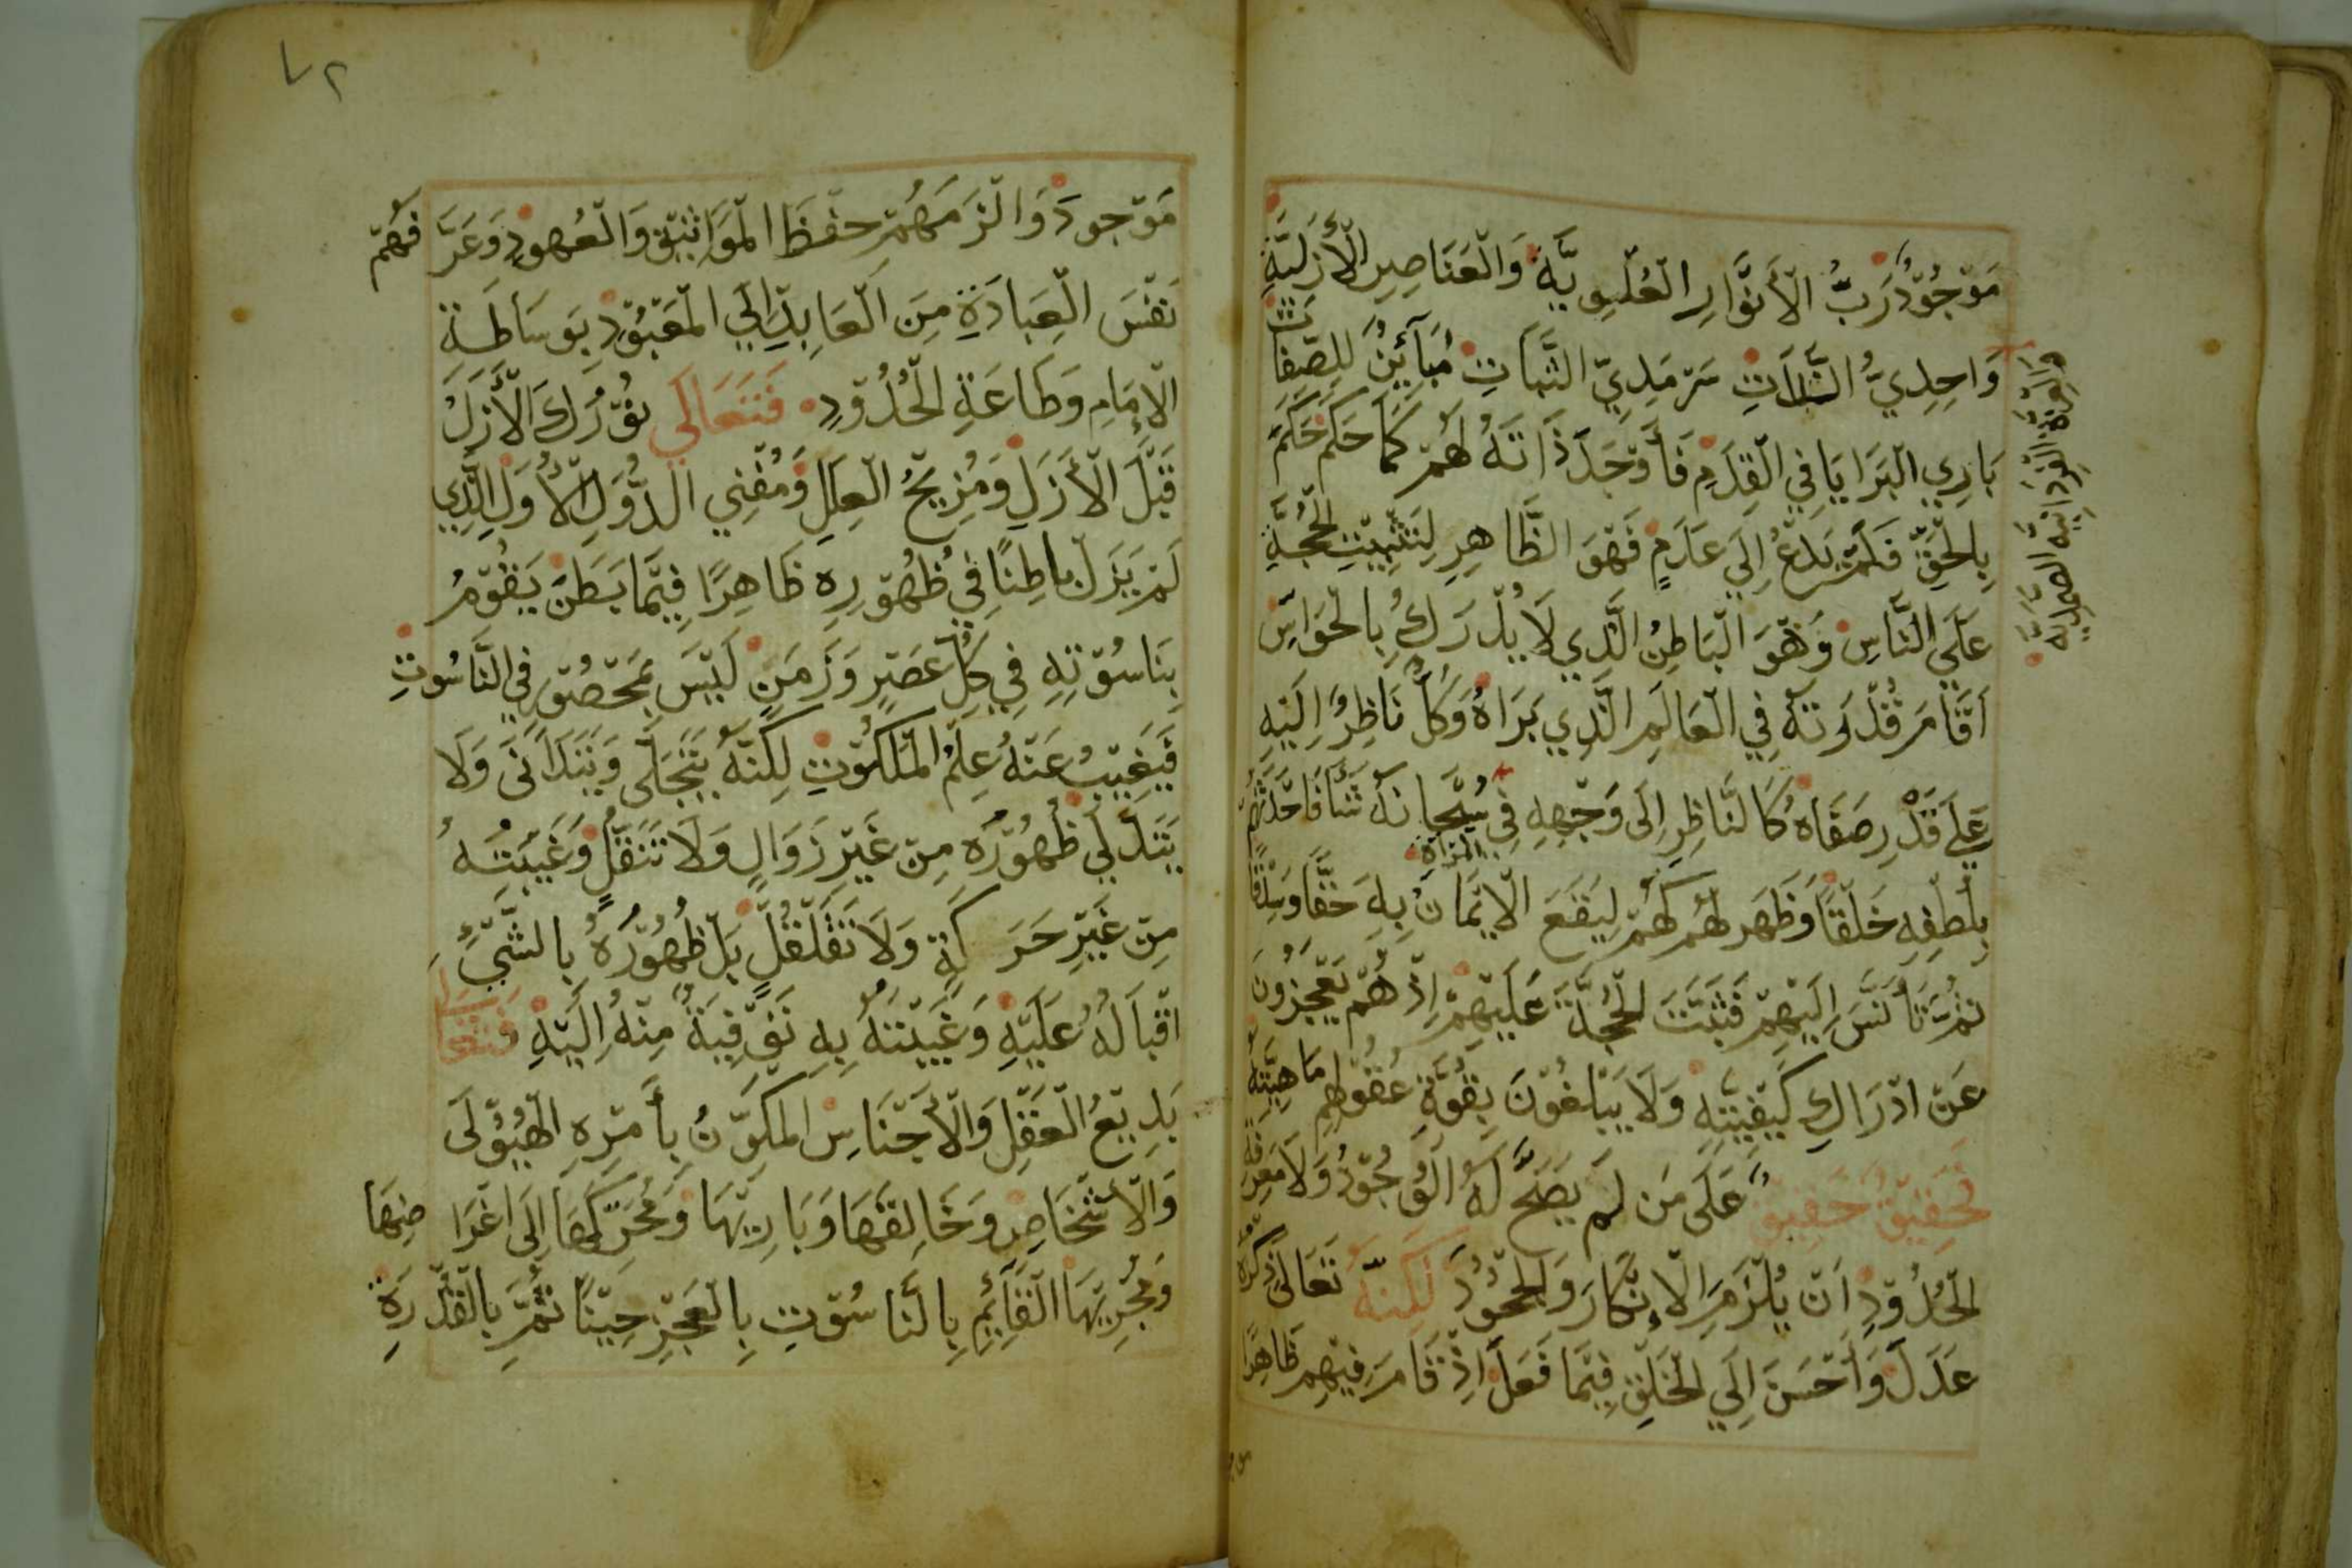 مَوْجُوْدٌ رَبُّ الْأَنْوَارِ الْعُلْوِيَّةِ وَالْعَنَاصِرِ الْأَزَلِيَّةِ
وَاحِدِيُّ الذَّاتِ سَرْمَدِيّ الثَّبَاتِ مُبَآئِنٌ لِلصِّفَاتِ
بَارِي الْبَرَايَا فِي الْقِدَمِ فَأَوْجَدَ ذَاتَهُ لَهُمْ كَمَا حَكَمَ حَكَمَ
بِالْحَقِّ فَلَمْ يَدْعُ إِلَى عَدَمٍ فَهْوَ الظَّاهِرِ لِتَثْبِيْتِ الْحُجَّةِ
عَلَى النَّاسِ وَهْوَ الْبَاطِنُ الَّذِي لَا يُدْرَكُ بِالْحَوَاسِّ
أَقَامَ قُدْرَتَهُ فِي الْعَالَمِ الَّذِي بَرَاهُ وَكُلٌّ نَاظِرٌ إِلَيْهِ
عَلَى قَدْرِ صَفَاهُ كَالنَّاظِرِ إِلَى وَجْهِهِ فِي الْمِرْآةِ سُبْحَانَهُ شَآءَ فَاحْدَثَهُمْ
بِلُطْفِهِ خَلْقًا وَظَهَرَ لَهُمْ كَهُمْ لِيَقَعَ الْإِيْمَانُ بِهِ حَقًّا وَصِدْقًا
ثُمَّ تَأَنَّسَ إِلَيْهِمْ فَثَبَتَتَ الْحُجَّةَ عَلَيْهِمْ إِذْ هُمْ يَعْجِزُونَ
عَنْ ادْرَاكِ كَيْفِيَّتِهِ وَلَا يَبْلُغُوْنَ بِقُوَّةِ عُقُوْلِهِم مَاهِيَّتَهُ
فَحَقِيْقٌ حَقِيْقٌ عَلَى مَن لَمْ يَصِحَّ لَهُ الْوُجُوْدُ وَلَا مَعْرِفَةُ
الْحُدُوْدِ أَنْ يُلْزَمَ الْإِنْكَارَ وَالْجُحُوْدَ لَكِنَّهُ تَعَالَى ذِكْرُهُ
عَدَلَ وَأَحْسَنَ إِلَى الْخَلْقِ فِيْمَا فَعَلَ إِذْ قَامَ فِيْهِم ظَاهِرًا
وَالْعِزَّةِ الْفَرْدَانِيَّه الصَّمَدِيَّه
٧٢
مَوْجُودَ وَالْزَمَهُمْ حِفْظَ الْمَوَاثِيْقِ وَالْعُهودِ وَعَرَّفَهُمْ
نَفْسَ الْعِبَادَةِ مِنَ الْعَابِدِ إِلَى الْمَعْبُوْدِ بِوَسَاطَةِ
الْإِمَامِ وَطَاعَةِ الْحُدُوْدِ فَتَعَالَى نُوْرُكَ الْأَزَلُ
قَبْلَ الْأَزَلِ وَمُزِيْحُ الْعِلَلِ وَمُفْنِي الدُّوَلِ الْأُوَلِ الَّذِي
لَمْ يَزَلْ بَاطِنًا فِي ظُهُوْرِهِ ظَاهِرًا فِيْمَا بَطَنَ يَقُوْمُ
بِنَاسُوْتِهِ فِي كُلِّ عَصْرٍ وَزَمَنٍ لَيْسَ بِمَحْصُوْرٍ فِي النَّاسُوتِ
فَيَغِيْبُ عَنْهُ عِلْمُ الْمَلَكُوْتِ لَكِنَّهُ يَتَجَلَّى وَيَتَدَانَى وَلَا
يَتَدَلَّى ظُهُوْرُه مِنْ غَيْرِ زَوَالٍ وَلَا تَنَقُّلٍ وَغَيْبَتُهُ
مِنْ غَيْرِ حَرَكَةٍ وَلَا تَقَلْقُلٍ بَلْ ظُهُوْرُهُ بِالشَّيْءِ
اقْبَالُهُ عَلَيْهِ وَغَيْبَتَهُ بِهِ تَوْفِيَةً مِنْهُ إِلَيْهِ فَتَعَالَى
بَدِيْعُ الْعَقْلِ وَالْأَجْنَاسِ الْمُكَوِّنُ بِأَمْرِهِ الْهَيُوْلَى
وَالْأَشْخَاصِ وَخَالِقُهَا وَبَارِيْهَا وَمُحَرِّكُهَا إِلَى اغْرَاضِهَا
وَمُجْرِيْهَا الْقَآئِمِ بِالنَّاسُوْتِ بِالْعَجْزِ حِيْنًا ثُمَّ بِالْقُدْرَةِ